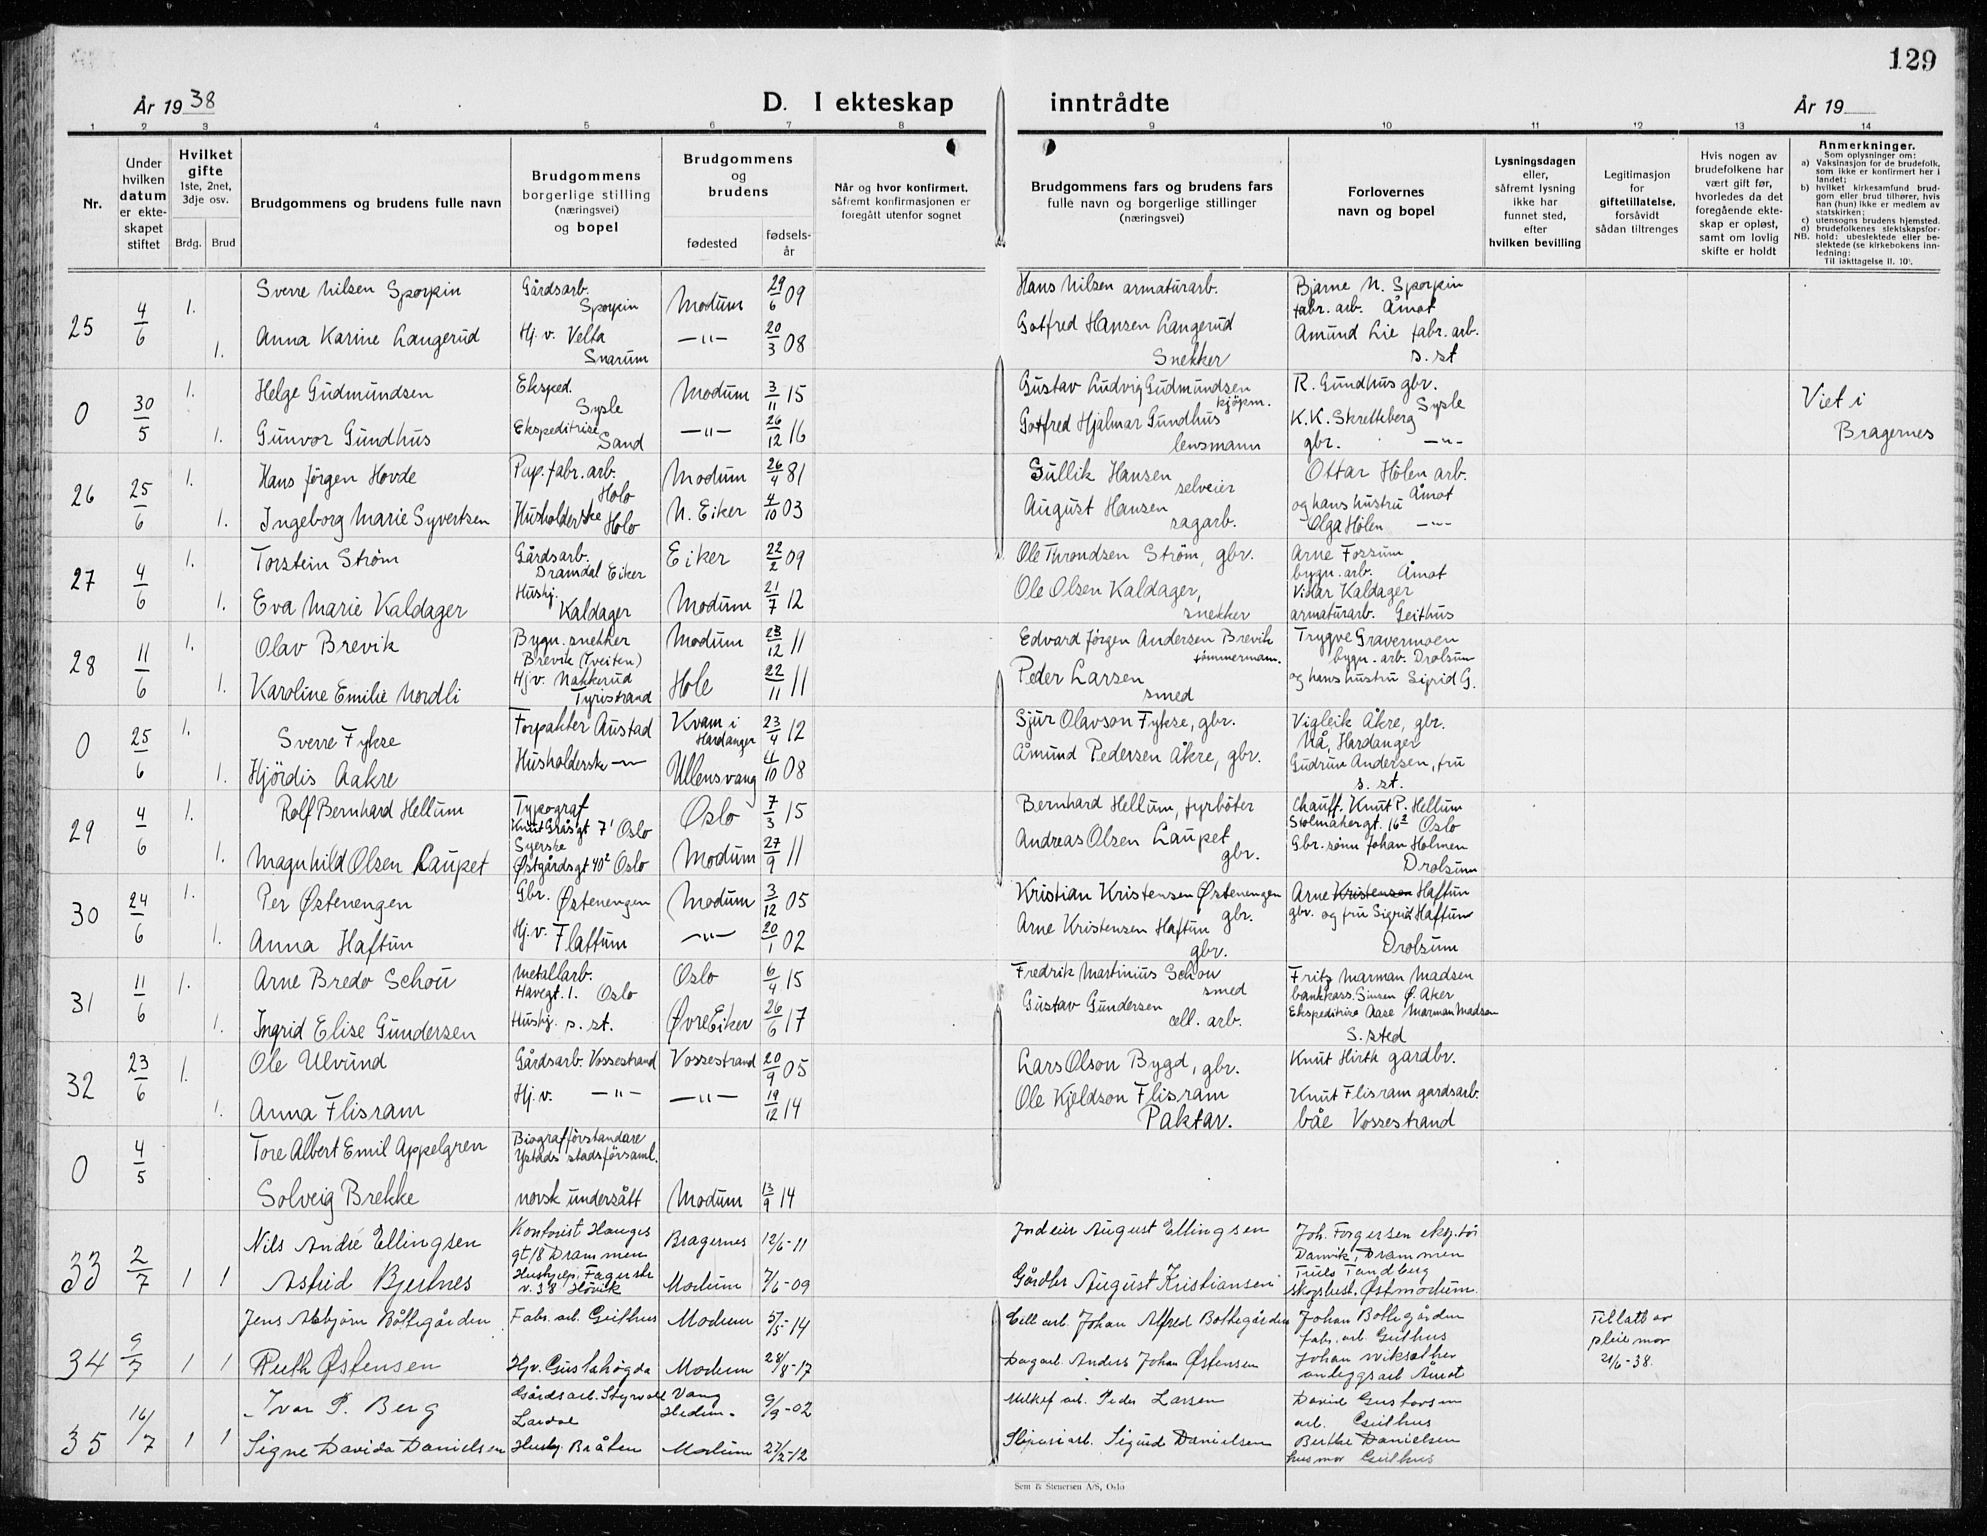 129
År 1938
D. I ekteskap inntrådte
År 19
1 2 3 4 5 6 7 8 9 10 11 12 13 14
Nr.
Under hvilken datum er ekteskapet stiftet
Hvilket gifte
1ste, 2net, 3dje osv.
Brdg. Brud
Brudgommens og brudens fulle navn
Brudgommens borgerlige stilling (næringsvei) og bopel
Brudgommens og brudens
fødested
fødselsår
Når og hvor konfirmert, såfremt konfirmasjonen er foregått utenfor sognet
Brudgommens fars og brudens fars fulle navn og borgerlige stillinger (næringsvei)
Forlovernes navn og bopel
Lysningsdagen eller, såfremt lysning ikke har funnet sted, efter hvilken bevilling
Legitimasjon for giftetillatelse, forsåvidt sådan tiltrenges
Hvis nogen av brudefolkene har vært gift før, hvorledes da det foregående ekteskap er opløst, samt om lovlig skifte er holdt
Anmerkninger.
Som oplysninger om:
a) Vaksinasjon for de brudefolk, som ikke er konfirmert her i landet;
b) hvilket kirkesamfund brudgom eller brud tilhører, hvis han (hun) ikke er medlem av statskirken;
c) utensogns brudens hjemsted.
d) brudefolkenes slektskapsforhold: ubeslektede eller beslektede (se kirkebokens innledning:
NB. Til iakttagelse II. 10).
25 4/6 1. Sverre Nilsen Sporpin Gårdsarb. Sporpin Modum 29/6 09 Hans Nilsen armaturarb. Bjarne N. Sporpin fabr. arb. Åmot
1. Anna Karine Langerud Hj. v. Velta Snarum —"— 20/3 08 Gotfred Hansen Langerud Snekker Amund Lie fabr. arb. s. st
0 30/5 1. Helge Gudmundsen Eksped. Sysle Modum 3/11 15 Gustav Ludvig Gudmundsen kjöpm. R. Gundhus gbr. Sysle Viet i Bragernes
1. Gunvor Gundhus Ekspeditrise Sand —"— 26/12 16 Gotfred Hjalmar Gundhus lensmann K.K. Skretteberg gbr. —"—
26 25/6 1. Hans Jørgen Hovde Pap. fabr. arb. Holo Modum 26/4 81 Gullik Hansen selveier Ottar Hölen arb. Åmot
1. Ingeborg Marie Syvertsen Husholderske Holo N. Eiker 4/10 03 August Hansen sagarb. og hans hustru Olga Hölen —"—
27 4/6 1. Torstein Strøm Gårdsarb. Dramdal Eiker Eiker 22/2 09 Ole Throndsen Strøm, gbr. Arne Fossum bygn. arb. Åmot
1. Eva Marie Kaldager Hushj. Kaldager Modum 21/7 12 Ole Olsen Kaldager, snekker Vidar Kaldager armaturarb. Geithus
28 11/6 1. Olav Brevik Bygn. snekker Brevik (Tveiten) Modum 23/12 11 Edvard Jørgen Andersen Brevik tømmermann. Trygve Gravermoen bygn. arb. Drolsum
1. Karoline Emilie Nordli Hj. v. Nakkerud Tyristrand Hole 22/11 11 Peder Larsen smed og hans hustru Sigrid G.
0 25/6 1. Sverre Fykse Forpakter Austad Kvam i Hardanger 23/4 12 Sjur Olavson Fykse, gbr. Vigleik Åkre, gbr. Nå, Hardanger
1. Hjördis Aakre Husholderske —"— Ullensvang 4/10 08 Åmund Pedersen Åkre, gbr. Gudrun Andersen, fru s. st.
29 4/6 1. Rolf Bernhard Hellum Typograf Knut Gråsgt 7¹ Oslo Oslo 7/3 15 Bernhard Hellum, fyrböter Chauff. Knut P. Hellum Stolmakergt. 16² Oslo
1. Magnhild Olsen Laupet Syerske Østgårdsgt 40² Oslo Modum 27/9 11 Andreas Olsen Laupet gbr. Gbr. sønn Johan Holmen Drolsum
30 24/6 1. Per Østenengen Gbr. Østenengen Modum 3/12 05 Kristian Kristensen Østenengen gbr. Arne Kristensen Haftun gbr. og fru Sigrid Haftun
1. Anna Haftun Hj. v. Flattum —"— 20/1 02 Arne Kristensen Haftun gbr. Drolsum
31 11/6 1. Arne Bredo Schou Metallarb. Havegt. 1. Oslo Oslo 6/4 15 Fredrik Martinius Schou smed Fritz Marman Madsen bankkass. Sinsen Ø. Aker
1. Ingrid Elise Gundersen Hushj. s. st. Øvre Eiker 26/6 17 Gustav Gundersen cell. arb. Ekspeditrise Aase Marman Madsen S. sted
32 23/6 1. Ole Ulvund Gårdsarb. Vossestrand Vossestrand 20/9 05 Lars Olson Bygd, gbr. Knut Hirth gardbr.
1. Anna Flisram Hj. v. —"— —"— 19/12 14 Ole Kjeldson Flisram Paktar. Knut Flisram gardsarb. båe Vossestrand
0 4/5 Tore Albert Emil Appelgren Biografförståndare Ystads stadsförsaml.
Solveig Brekke norsk undersått Modum 13/9 14
33 2/7 1 1 Nils André Ellingsen Kontorist Hauges gt 18 Drammen Bragernes 12/6-11 Jndeier August Ellingsen Joh. Forgersen Danvik, Drammen
Astrid Bjertnes Hushjelp. v. 38 Høvik Modum 7/6-09 Gårdbr August Kristiansen Truls Tandberg skogsbest. Østmodum.
34 9/7 1 1 Jens Asbjörn Böttegården Fabr. arb. Geithus Modum 5/5-14 Cell arb. Johan Alfred Bottegården Johan Bottegården fabr. arb Geithus Tillatt av pleiemor 21/6-38.
Ruth Østensen Hjv. Gustahøgda Modum 28/8-17 Dagarb. Anders Johan Østensen Johan anleggsarb Åmot
35 16/7 1 1 Ivar P. Berg Gårdsarb. Styrvoll Lardal Vang Hedm. 9/9-02 Melkef. arb. Peder Larsen David Gustavsen arb. Geithus
Signe Davida Danielsen Hushj. Bråten Modum 27/2-12 Sliperiarb. Sigurd Danielsen Berthe Danielsen husmor Geithus
Sem & Stenersen A/S, Oslo